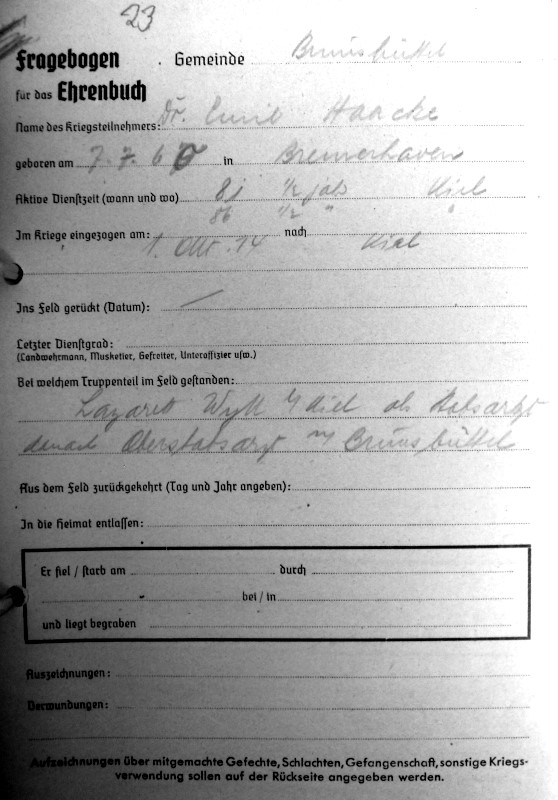 23
Fragebogen
Gemeinde Brunsbüttel
für das Ehrenbuch
Name des Kriegsteilnehmers: Dr. Emil Haacke
geboren am 7.7.66 in Bremerhaven
Aktive Dienstzeit (wann und wo) 81 1/2 Jahr Kiel
86 1/2 " "
Im Kriege eingezogen am: 1. Okt. 14 nach Kiel
Ins Feld gerückt (Datum): —
Letzter Dienstgrad:
(Landwehrmann, Musketier, Gefreiter, Unteroffizier usw.)
Bei welchem Truppenteil im Feld gestanden:
Lazaret Kiel als Stabsarzt
danach Oberstabsarzt Brunsbüttel
Aus dem Feld zurückgekehrt (Tag und Jahr angeben):
In die Heimat entlassen:
Er fiel / starb am durch
bei / in
und liegt begraben
Auszeichnungen:
Verwundungen:
Aufzeichnungen über mitgemachte Gefechte, Schlachten, Gefangenschaft, sonstige Kriegs-
verwendung sollen auf der Rückseite angegeben werden.